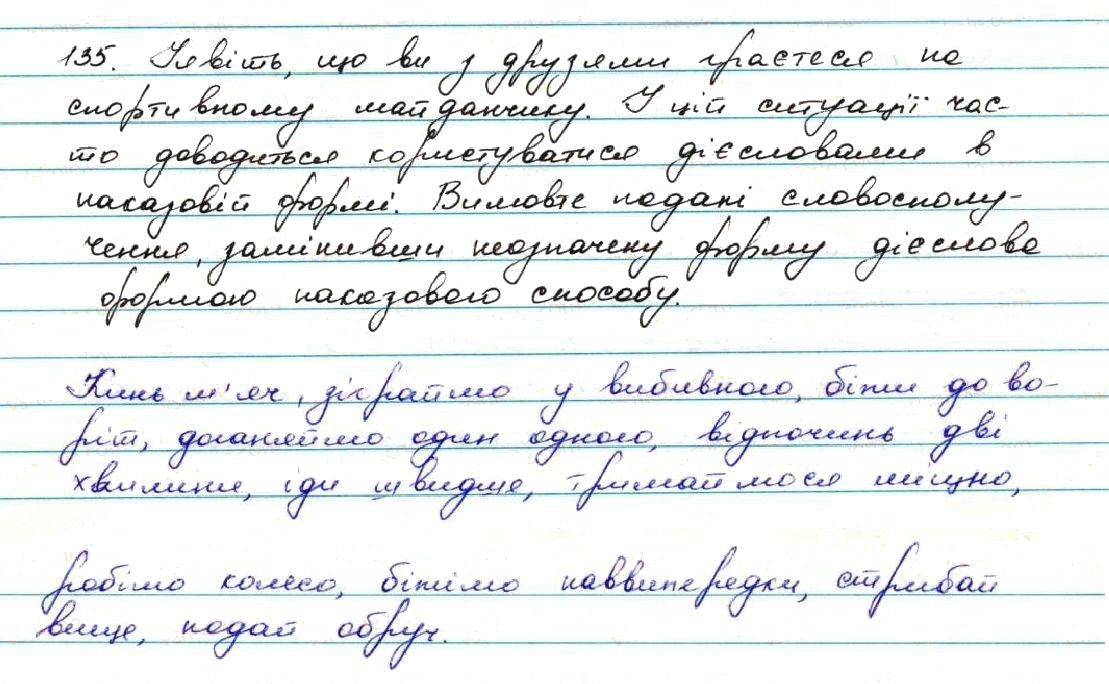 135. Уявіть, що ви з друзями граєтеся на
спортивному майданчику. У цій ситуації час-
то доводиться користуватися дієсловами в
наказовій формі. Вимовте подані словосполу-
чення, замінивши неозначену форму дієслова
формою наказового способу.
Кинь м'яч, зіграймо у вибивного, біжи до во-
ріт, доганяймо один одного, відпочинь дві
хвилини, іди швидше, тримаймося міцно,
робімо колесо, біжімо наввипередки, стрибай
вище, подай обруч.